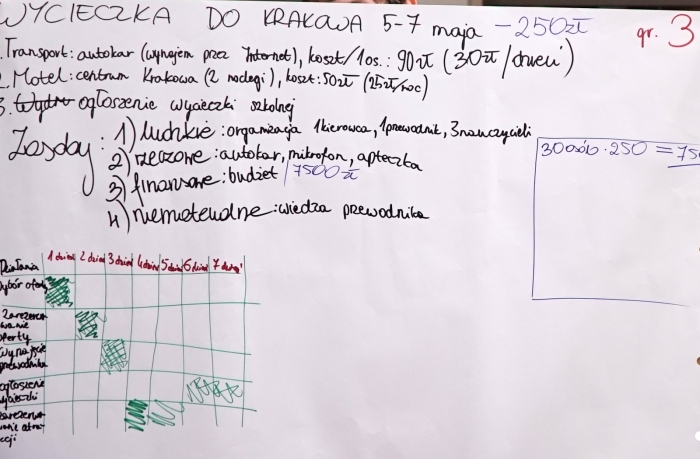 WYCIECZKA DO KRAKOWA 5-7 maja - 250zł
gr. 3
1. Transport: autokar (wynajem przez Internet), koszt/1os.: 90zł (30zł/dzień)
2. Motel: centrum Krakowa (2 noclegi), koszt: 50zł (25zł/noc)
3. ogłoszenie wycieczki szkolnej
Zasoby: 1) ludzkie: organizacja 1kierowca, 1przewodnik, 3nauczycieli
2) rzeczowe: autokar, mikrofon, apteczka
3) finansowe: budżet / 7500zł
4) niematerialne: wiedza przewodnika
30 osób · 250 = 75
Działania 1 dzień 2 dzień 3 dzień 4 dzień 5 dzień 6 dzień 7 dzień
wybór oferty
Zarezer
wanie
oferty
Wynajęcie
przewodnika
ogłoszenie
wycieczki
zarezerwo
wanie atra
kcji